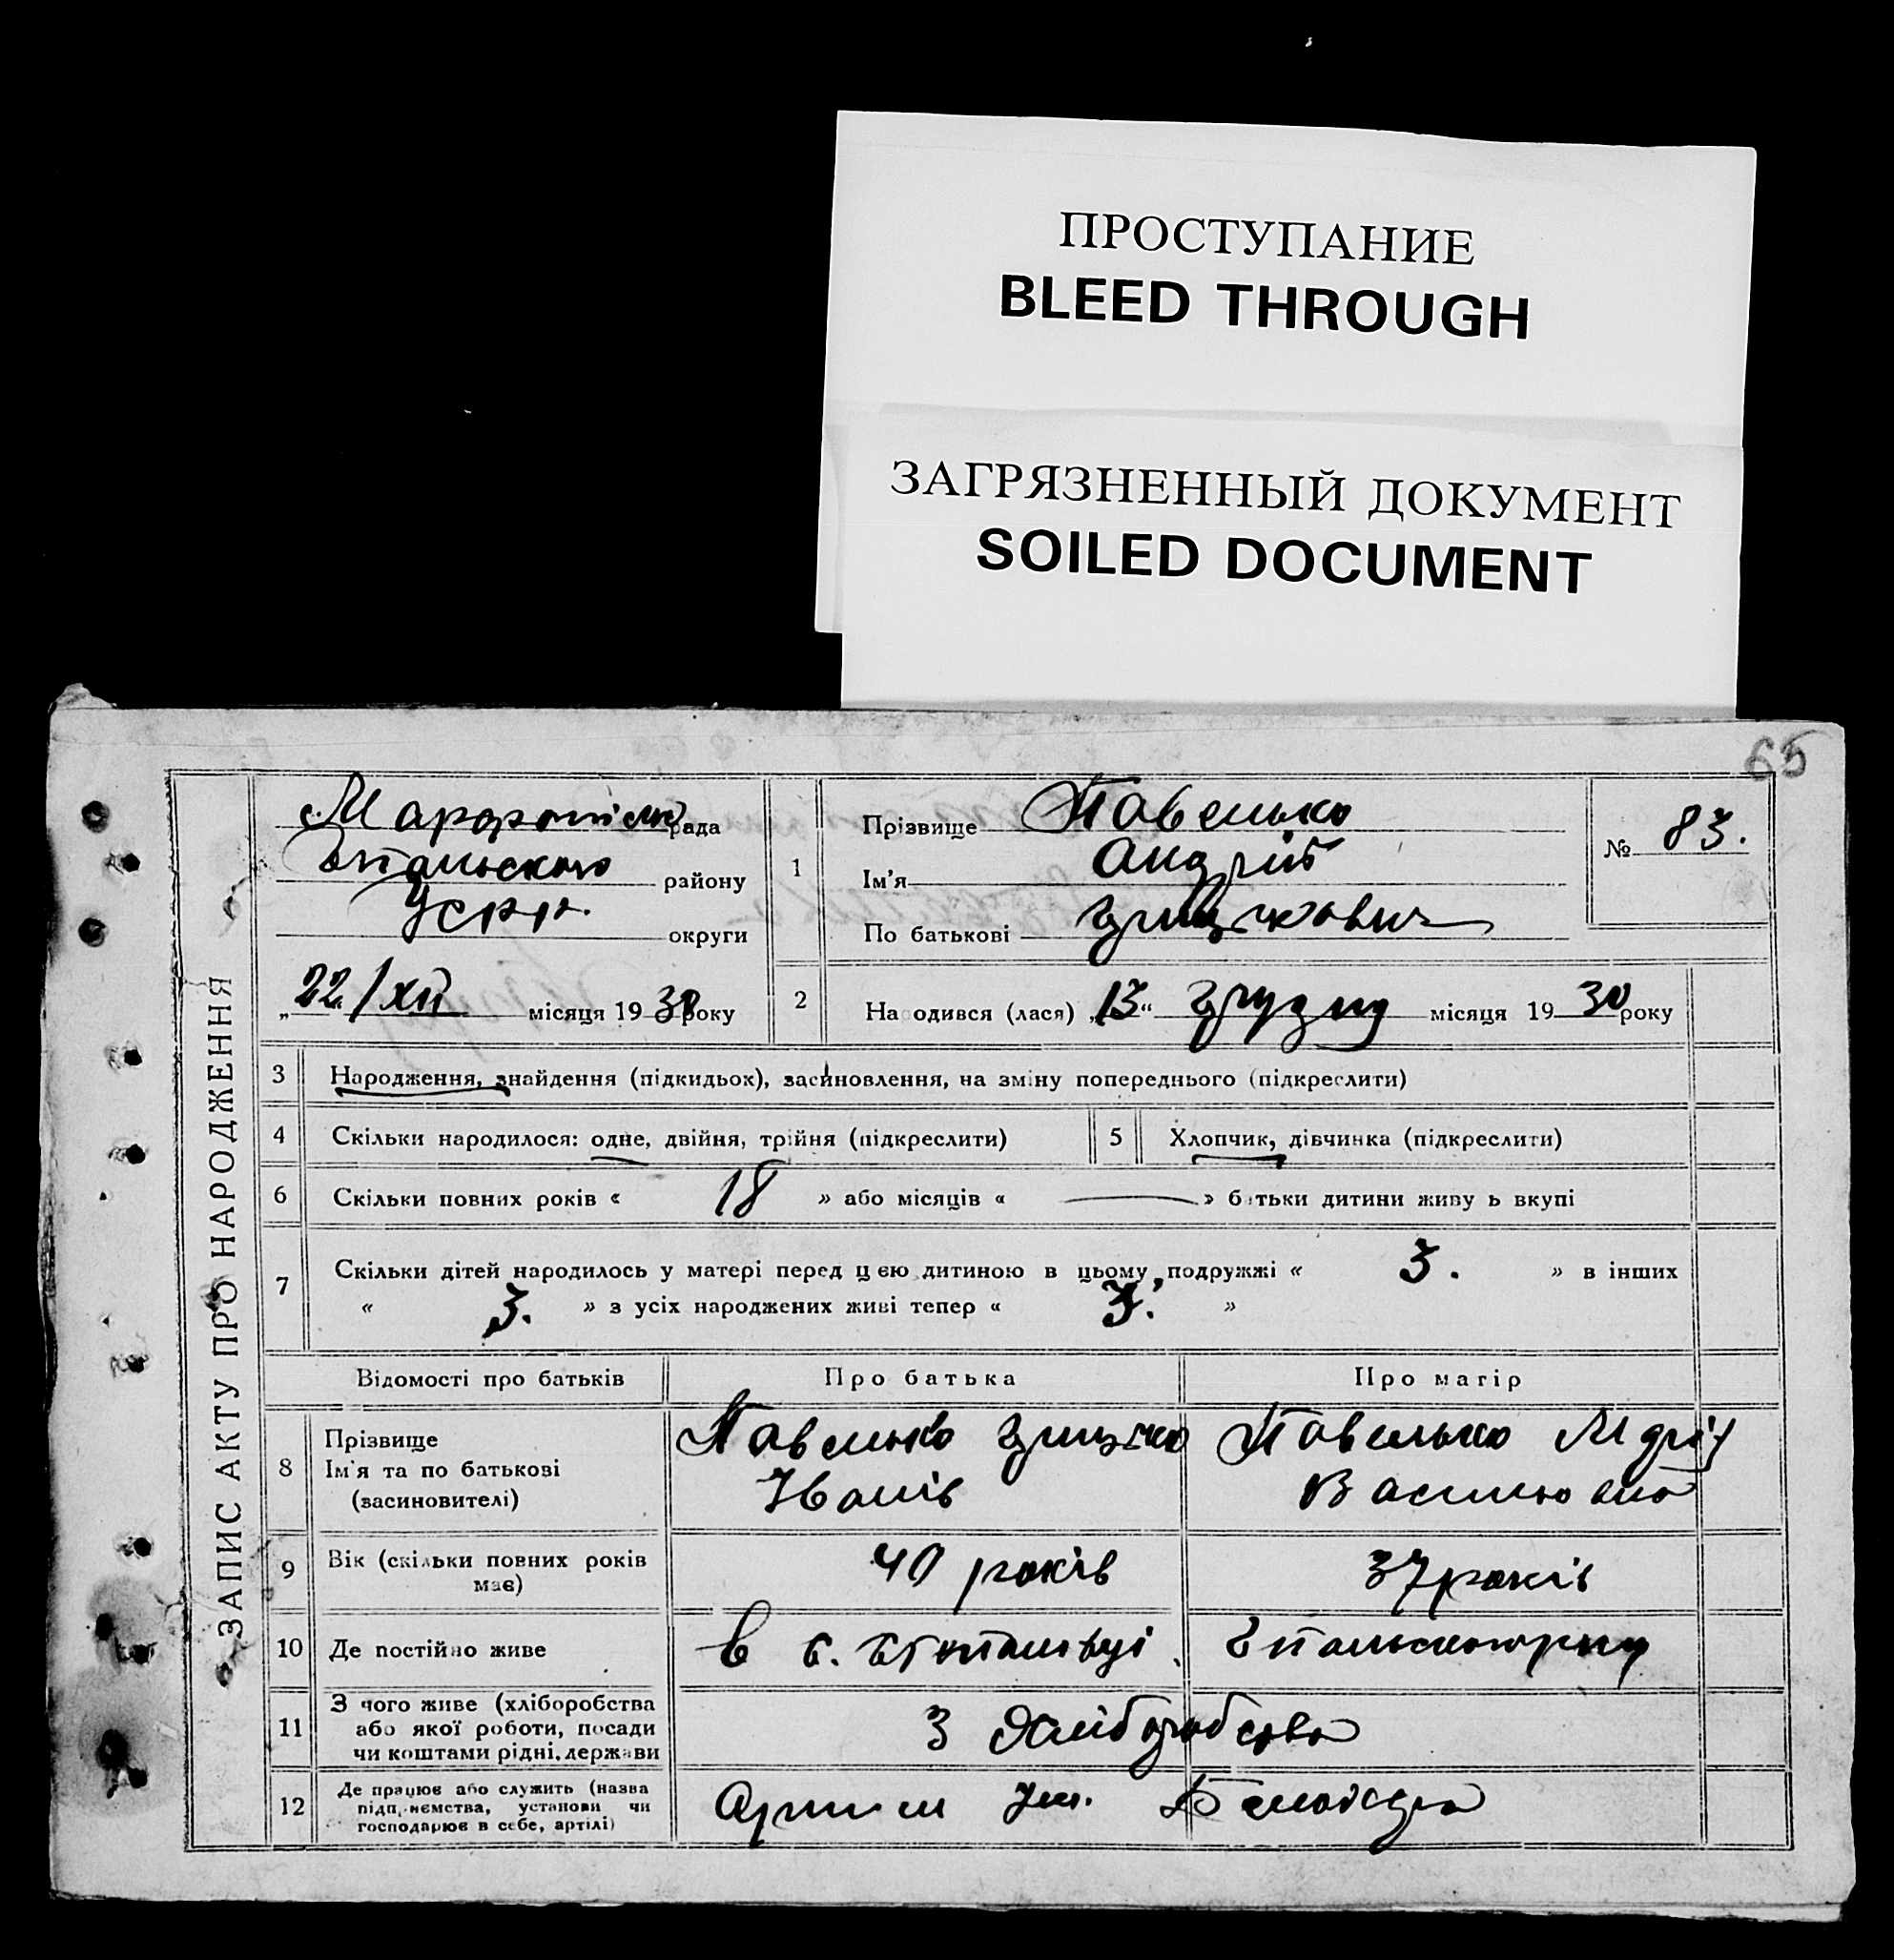 ПРОСТУПАНИЕ
BLEED THROUGH
ЗАГРЯЗНЕННЫЙ ДОКУМЕНТ
SOILED DOCUMENT
65
ЗАПИС АКТУ ПРО НАРОДЖЕННЯ
рада
району
УСРР.
округи
"22/XII місяця 1930 року
1
Прізвище Павелько
Ім'я Андрій
По батькові Грицькович
№ 83.
2
Народився (лася) "13" грудня місяця 1930 року
3 Народження, знайдення (підкидьок), засиновлення, на зміну попереднього (підкреслити)
4 Скільки народилося: одне, двійня, трійня (підкреслити)
5 Хлопчик, дівчинка (підкреслити)
6 Скільки повних років « 18 » або місяців « — » батьки дитини живуть вкупі
7 Скільки дітей народилось у матері перед цією дитиною в цьому подружжі « 3. » в інших
« 3. » з усіх народжених живі тепер « 3. »
Відомості про батьків Про батька Про матір
8 Прізвище
Ім'я та по батькові
(засиновителі)
Павелько Грицько
Іванів
Павелько
9 Вік (скільки повних років
має)
40 років 37 років
10 Де постійно живе
в с.
11 З чого живе (хліборобства
або якої роботи, посади
чи коштами рідні, держави
З хліборобства
12 Де працює або служить (назва
підприємства, установи чи
господарює в себе, артілі)